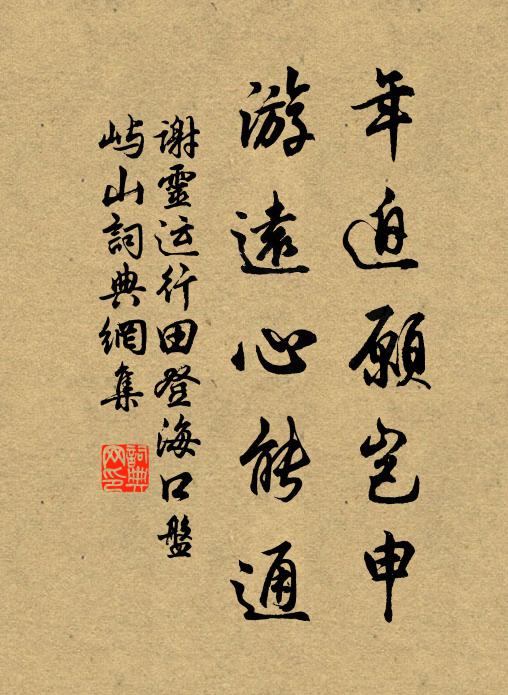 年迫願豈申
游遠心能通
謝靈运行田登海口盤
屿山詞典網集
詞典
网印